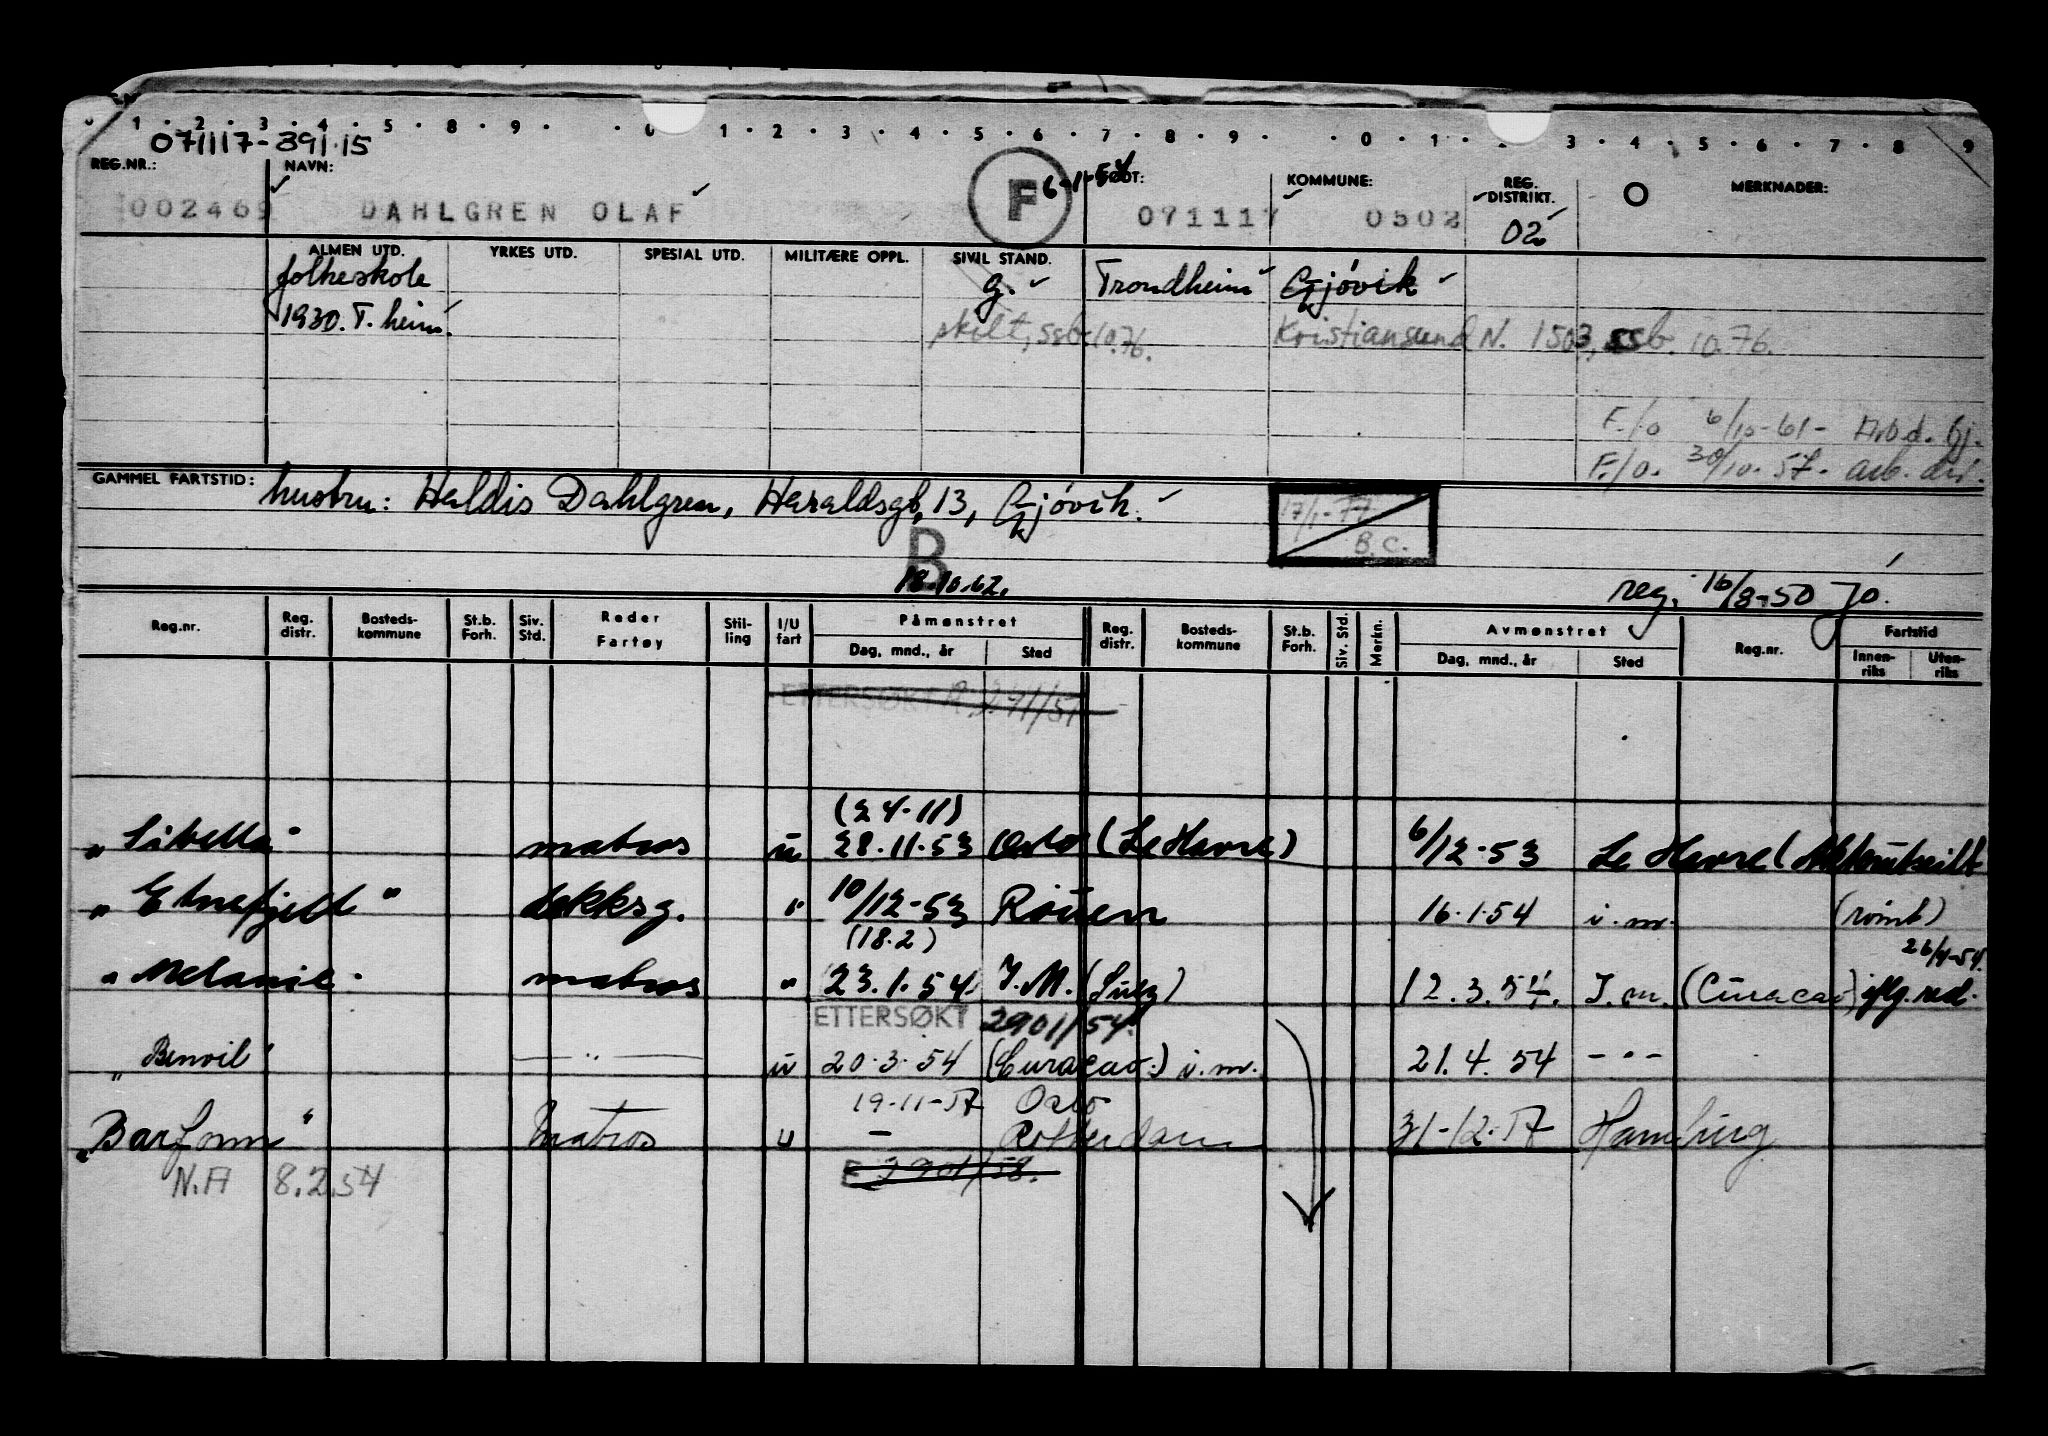 0 · 1 · 2 · 3 · 4 · 5 · 8 · 9 · · 0 · 1 · 2 · 3 · 4 · 5 · 6 · 7 · 8 · 9 · · 0 · 1 · · 3 · 4 · 5 · 6 · 7 · 8 · 9
071117-391.15
REG.NR.: NAVN: FØDT: KOMMUNE: REG. DISTRIKT. O MERKNADER:
002469 DAHLGREN OLAF F 6-1-54 071117 0502 02
ALMEN UTD. YRKES UTD. SPESIAL UTD. MILITÆRE OPPL. SIVIL STAND.
folkeskole g. Trondheim Gjøvik
1930. T.heim. skilt, ssb 10.76. Kristiansund N. 1503, ssb. 10.76.
F./o 6/10-61-
F./o. 30/10-57- arb. dir.
GAMMEL FARTSTID: hustru: Haldis Dahlgren, Haraldsgt, 13, Gjøvik.
17/1-77 B.C.
B
18.10.62. reg. 16/8-50 Jo.
Reg.nr. Reg. distr. Bosteds-kommune St.b. Forh. Siv. Std. Reder Fartøy Stil-ling I/U fart Påmønstret Dag, mnd., år Sted Reg. distr. Bosteds-kommune St.b. Forh. Siv. Std. Merkn. Avmønstret Dag, mnd., år Sted Reg.nr. Fartstid Innen-riks Uten-riks
ETTERSØKT
(24-11)
"Sibella" matros u 28.11.53 Oslo (Le Havre) 6/12-53 Le Havre
"Etnefjell" dekksg. " 10/12-53 Rouen 16.1.54 i.m. (rømt)
(18.2) 26/4-54.
"Melanie" matros " 23.1.54 I.M. (Suez) 12.3.54. I.m. (Curacao)
ETTERSØKT 2901/54.
"Benwil" — " — u 20.3.54 (Curacao.) i.m. 21.4.54 - " -
19-11-57 Oslo
"Barfonn" matros u — Rotterdam 31-12-57 Hamburg
N.A 8.2.54 E 2901/58.